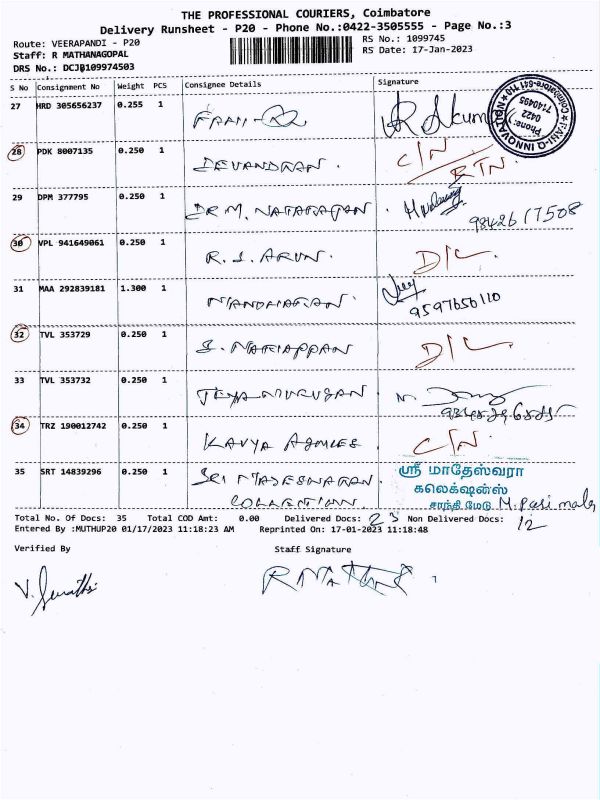 THE PROFESSIONAL COURIERS, Coimbatore
Delivery Runsheet - P20 - Phone No.:0422-3505555 - Page No.:3
Route: VEERAPANDI - P20
RS No.: 1099745
Staff: R MATHANAGOPAL
RS Date: 17-Jan-2023
DRS No.: DCJB109974503
S No Consignment No Weight PCS Consignee Details Signature
27 HRD 305656237 0.255 1 FRANI-Q
28 PDK 8007135 0.250 1 DEVANDRAN. C/N RTN
29 DPM 377795 0.250 1 DR M. NATARAJAN. 98426 17508
30 VPL 941649061 0.250 1 R. S. ARUN. D/L
31 MAA 292839181 1.300 1 9597656110
32 TVL 353729 0.250 1 S. MARIAPPAN D/L
33 TVL 353732 0.250 1 JEYAMURUGAN
34 TRZ 190012742 0.250 1 KAVYA C/N
35 SRT 14839296 0.250 1 SRI MADESWARAN. ஸ்ரீ மாதேஸ்வரா
COLLECTION. கலெக்ஷன்ஸ்
சாந்தி மேடு
Total No. Of Docs: 35 Total COD Amt: 0.00 Delivered Docs: 23 Non Delivered Docs: 12
Entered By :MUTHUP20 01/17/2023 11:18:23 AM Reprinted On: 17-01-2023 11:18:48
Verified By Staff Signature